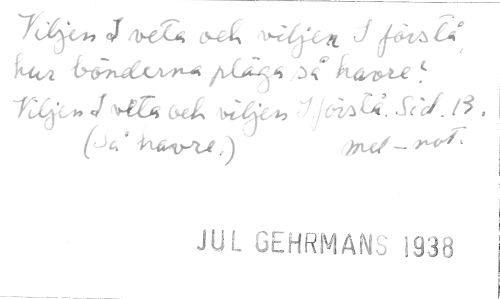 Viljen I veta och viljen I förstå,
hur bönderna pläga så havre?
Viljen I veta och viljen I förstå. Sid. 13.
(Så havre.) mel-not.
JUL GEHRMANS 1938